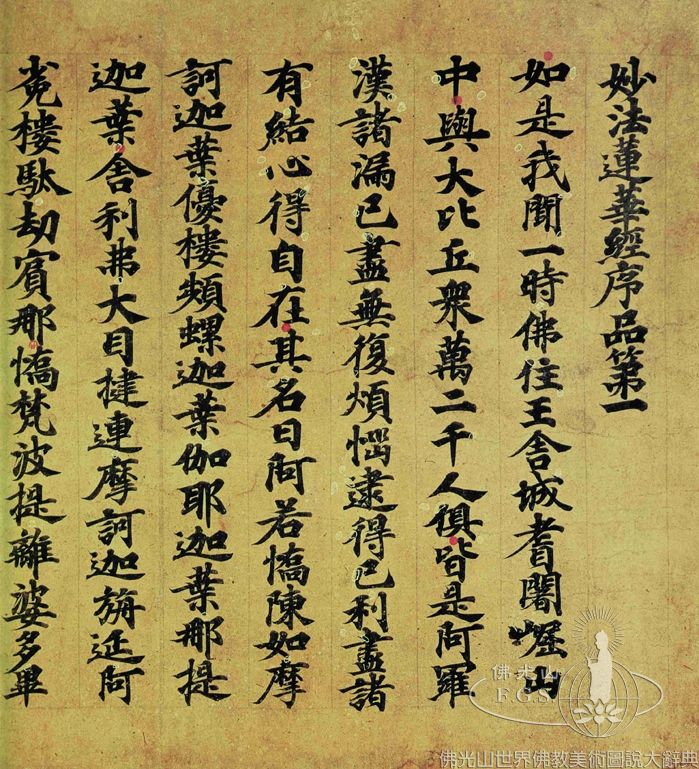 妙法蓮華經序品第一
如是我聞一時佛住王舍城耆闍崛山
中與大比丘衆萬二千人俱皆是阿羅
漢諸漏已盡無復煩惱逮得己利盡諸
有結心得自在其名曰阿若憍陳如摩
訶迦葉優樓頻螺迦葉伽耶迦葉那提
迦葉舍利弗大目揵連摩訶迦旃延阿
㝹樓馱劫賓那憍梵波提離婆多畢
佛光山
F.G.S.
佛光山世界佛教美術圖說大辭典